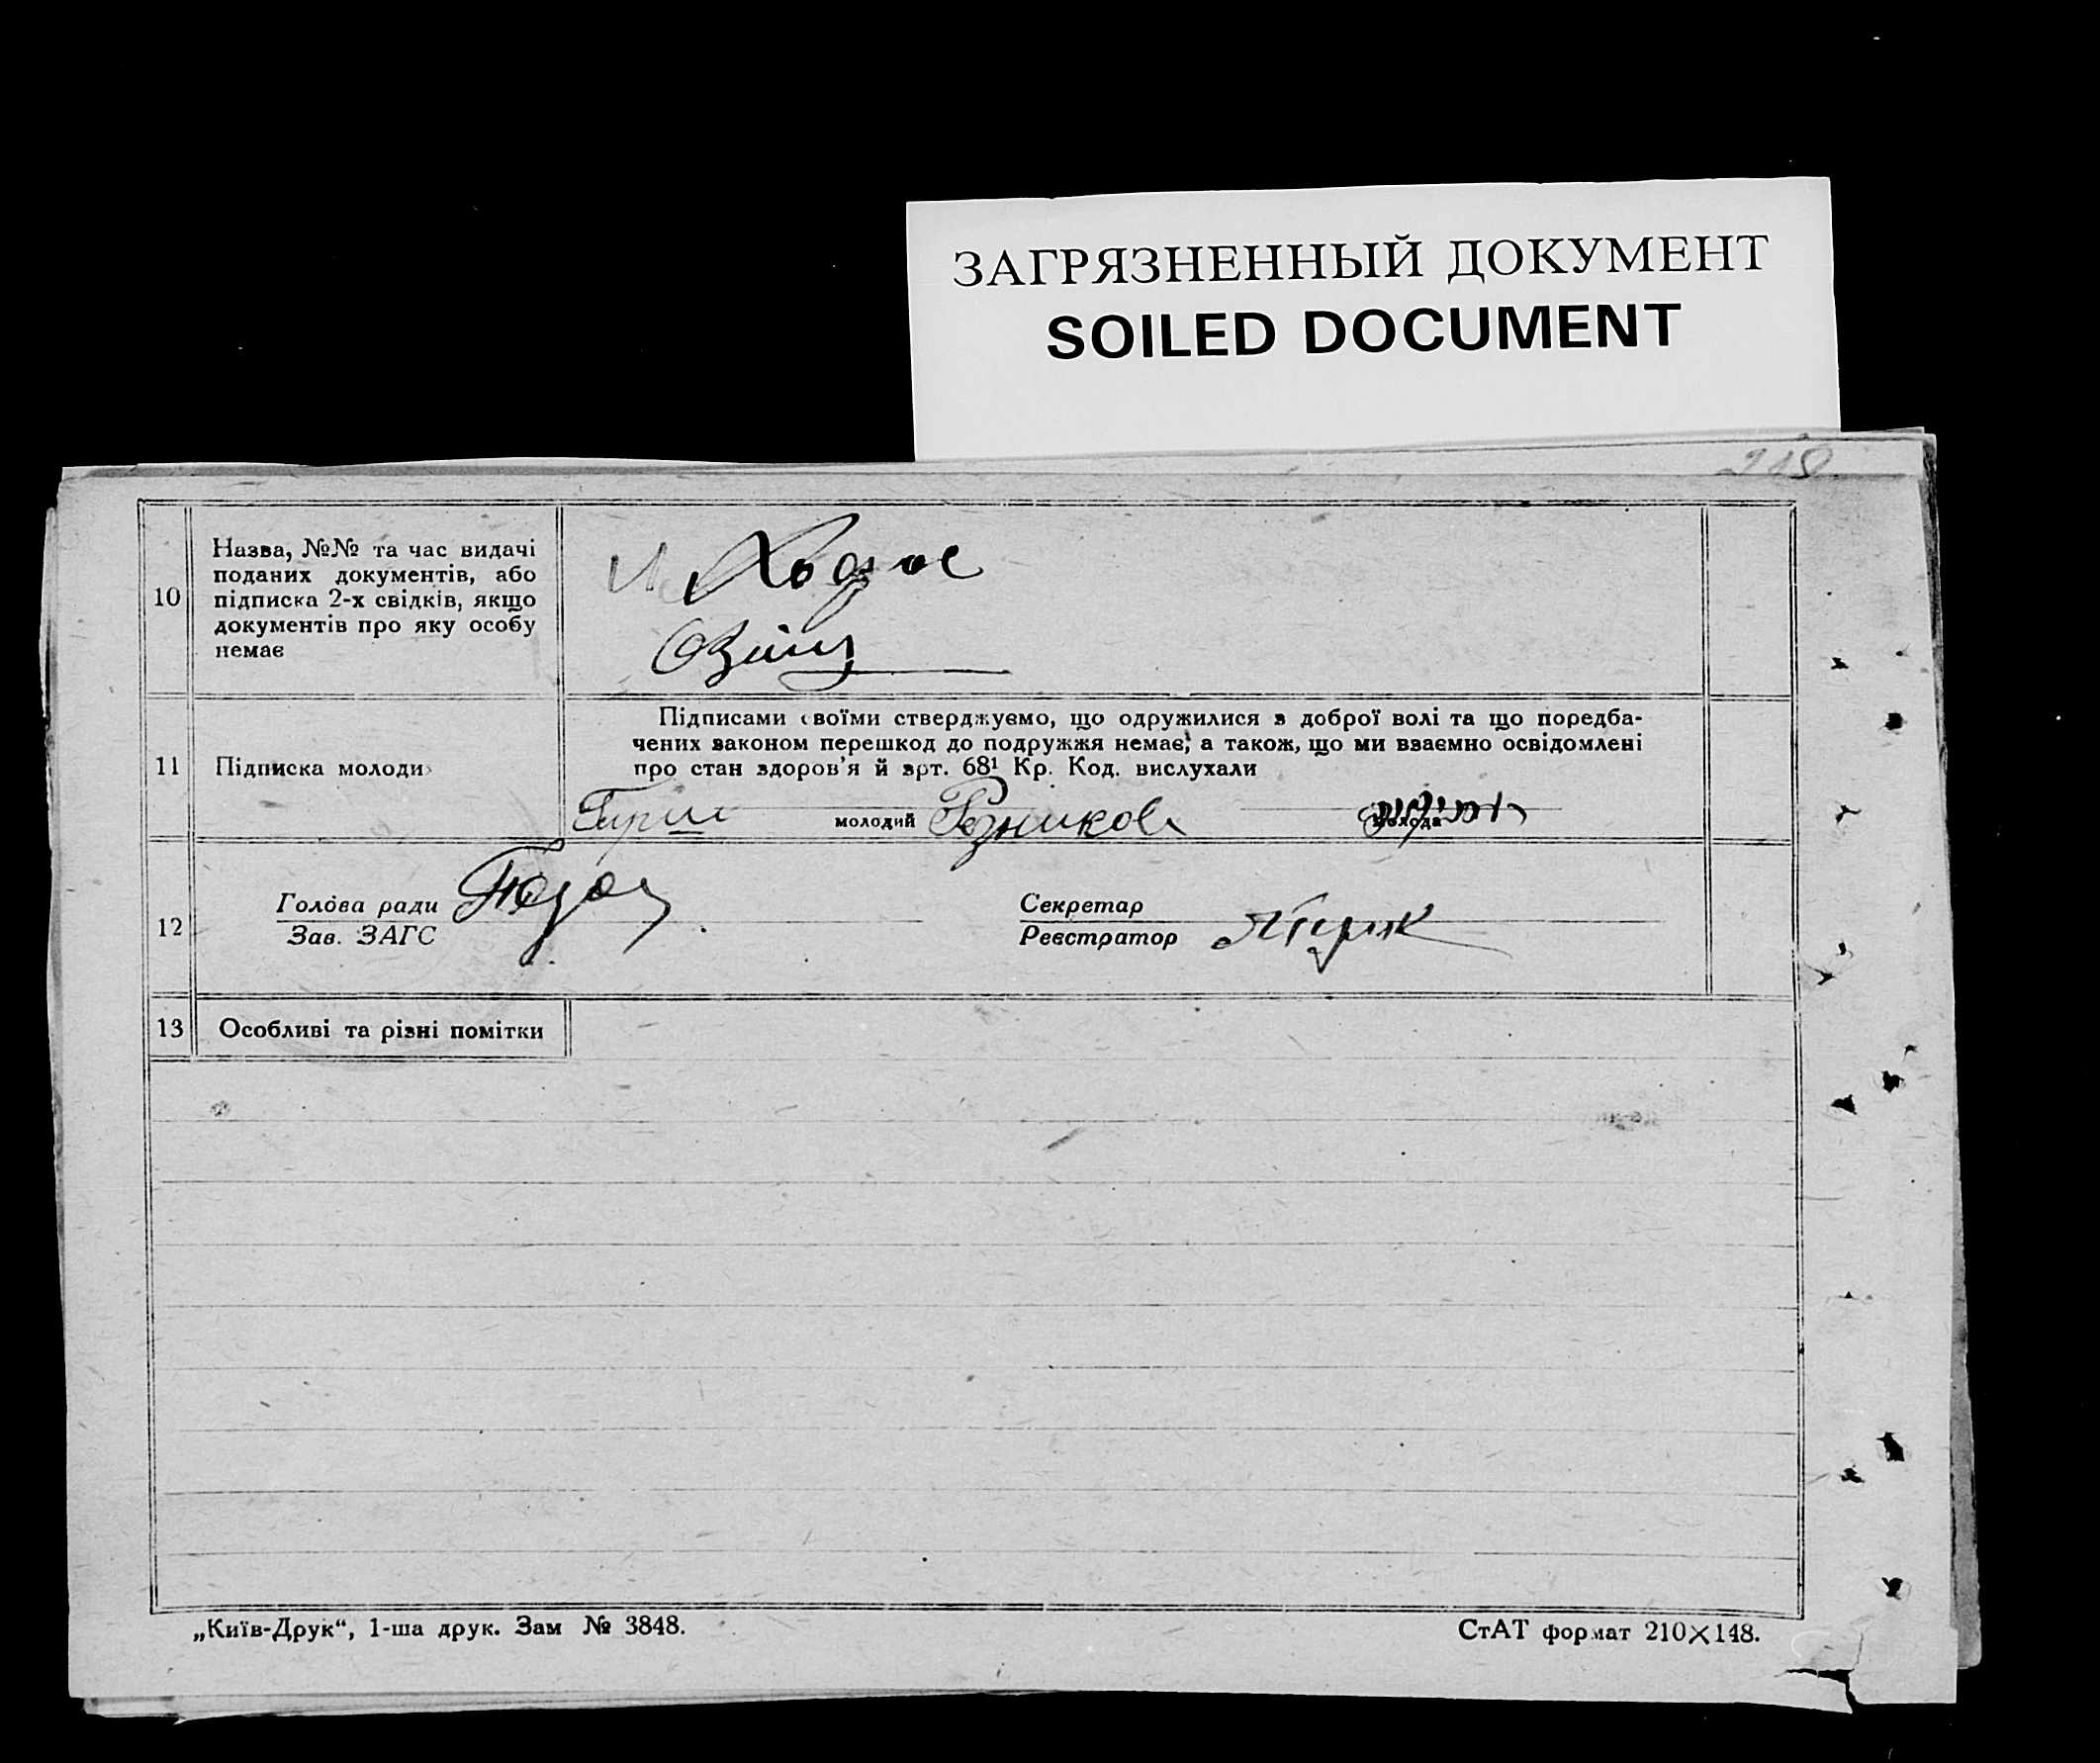 ЗАГРЯЗНЕННЫЙ ДОКУМЕНТ
SOILED DOCUMENT
218
10
Назва, №№ та час видачі
поданих документів, або
підписка 2-х свідків, якщо
документів про яку особу
немає
11
Підписка молоди
Підписами своїми стверджуємо, що одружилися з доброї волі та що поредба-
чених законом перешкод до подружжя немає, а також, що ми взаємно освідомлені
про стан здоров'я й арт. 68¹ Кр. Код. вислухали
молодий Резников молода
12
Голова ради
Зав. ЗАГС
Секретар
Реєстратор
13
Особливі та різні помітки
„Київ-Друк“, 1-ша друк. Зам № 3848.
СтАТ формат 210×148.